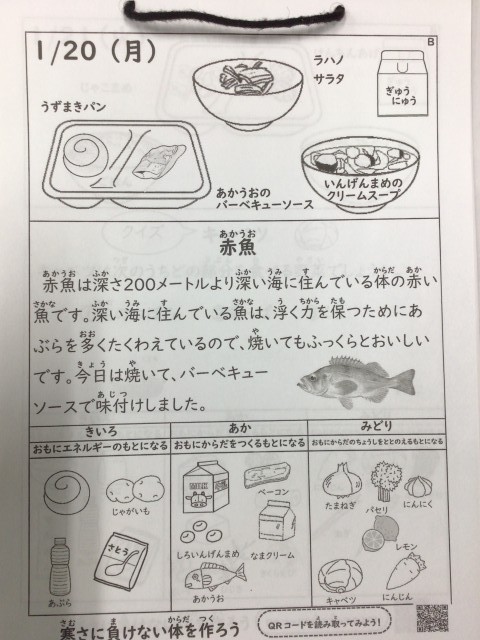 1/20（月）
B
ラハノ
サラタ
ぎゅう
にゅう
うずまきパン
あかうおの
バーベキューソース
いんげんまめの
クリームスープ
赤魚
あかうお
赤魚は深さ200メートルより深い海に住んでいる体の赤い
魚です。深い海に住んでいる魚は、浮く力を保つためにあ
ぶらを多くたくわえているので、焼いてもふっくらとおいしい
です。今日は焼いて、バーベキュー
ソースで味付けしました。
きいろ
あか
みどり
おもにエネルギーのもとになる
おもにからだをつくるもとになる
おもにからだのちょうしをととのえるもとになる
じゃがいも
あぶら
さとう
ベーコン
しろいんげんまめ
なまクリーム
あかうお
たまねぎ
パセリ
にんにく
レモン
キャベツ
にんじん
寒さに負けない体を作ろう
QRコードを読み取ってみよう！